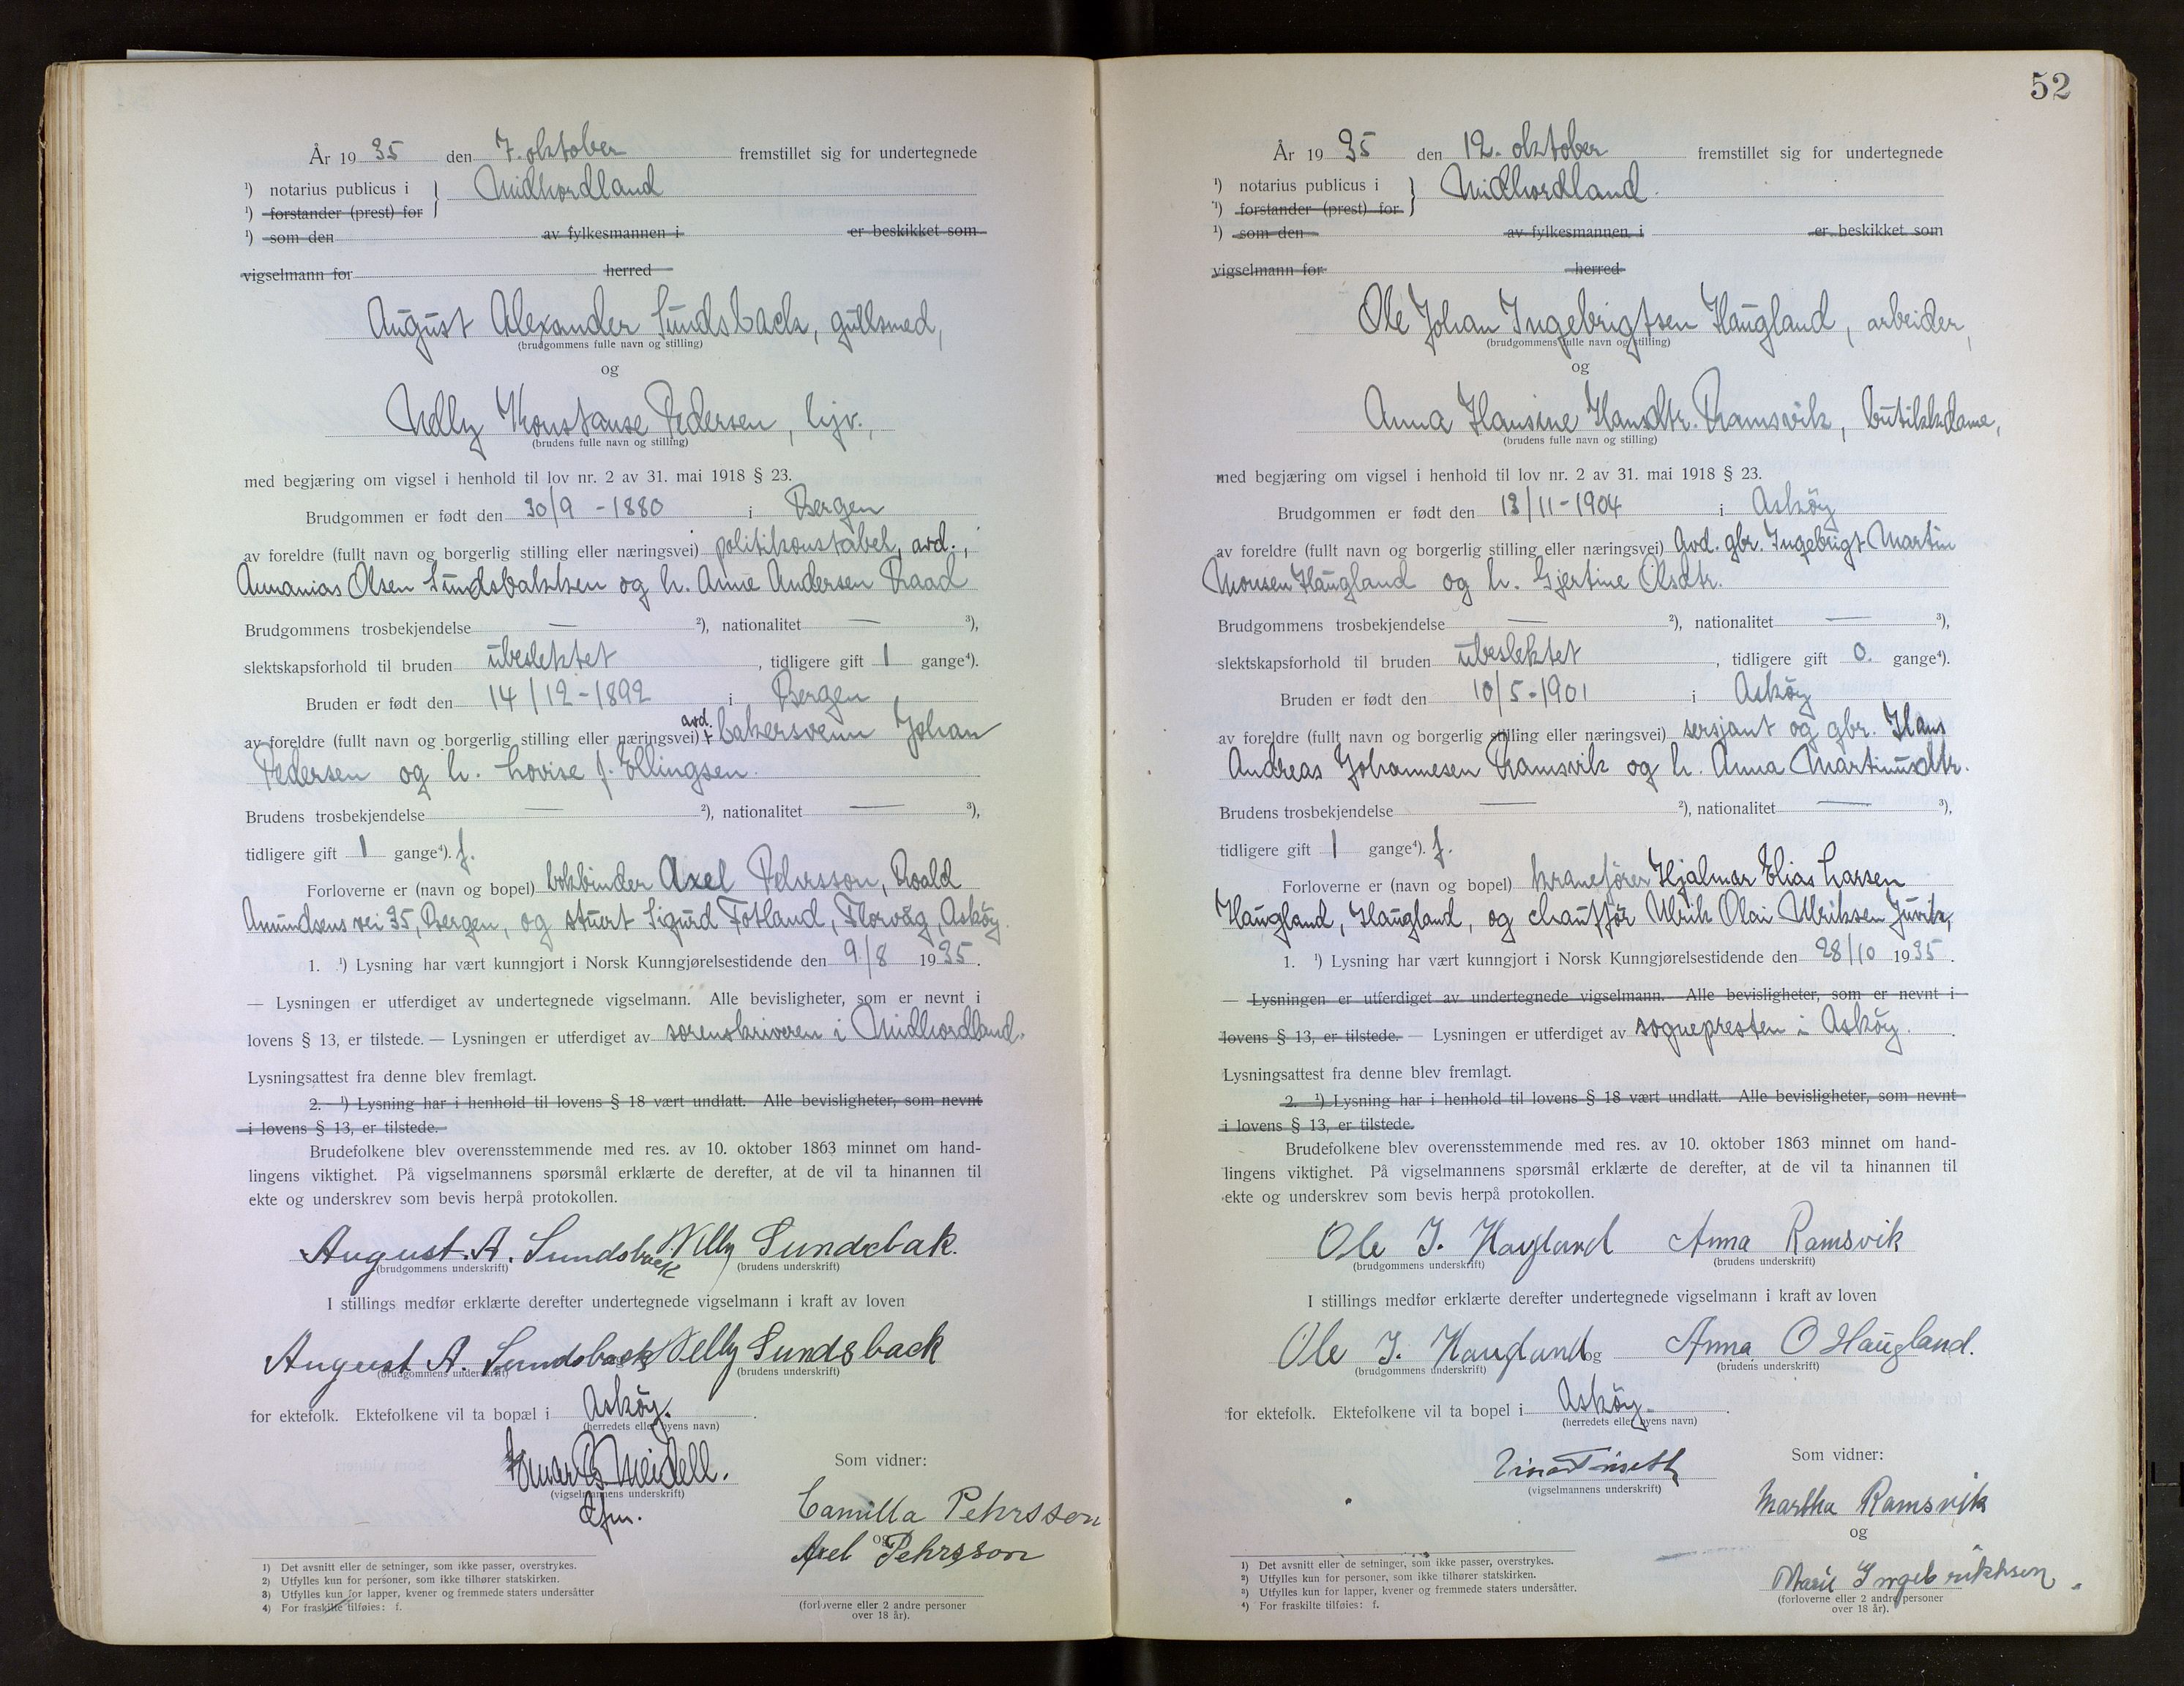 År 19 35 den 7. oktober fremstillet sig for undertegnede
¹) notarius publicus i } Midhordland
¹) forstander (prest) for
¹) som den av fylkesmannen i er beskikket som
vigselmann for herred
August Alexander Sundsback, gullsmed,
(brudgommens fulle navn og stilling)
og
Nelly Konstanse Pedersen, hjv.,
(brudens fulle navn og stilling)
med begjæring om vigsel i henhold til lov nr. 2 av 31. mai 1918 § 23.
Brudgommen er født den 30/9 - 1880 i Bergen
av foreldre (fullt navn og borgerlig stilling eller næringsvei) politikonstabel, avd.,
Annanias Olsen Sundsbakken og h. Anne Andersen Raad
Brudgommens trosbekjendelse — ²), nationalitet — ³),
slektskapsforhold til bruden ubeslektet, tidligere gift 1 gange⁴).
Bruden er født den 14/12-1892 i Bergen
avd.
av foreldre (fullt navn og borgerlig stilling eller næringsvei) + bakersvenn Johan
Pedersen og h. Lovise f. Ellingsen.
Brudens trosbekjendelse — ²), nationalitet — ³),
tidligere gift 1 gange⁴). f.
Forloverne er (navn og bopel) bokbinder Axel Pehrsson, Roald
Amundsens vei 35, Bergen, og stuert Sigurd Fotland, Florvåg, Asköy.
1. ¹) Lysning har vært kunngjort i Norsk Kunngjørelsestidende den 9/8 1935.
— Lysningen er utferdiget av undertegnede vigselmann. Alle bevisligheter, som er nevnt i
lovens § 13, er tilstede. — Lysningen er utferdiget av sorenskriveren i Midhordland.
Lysningsattest fra denne blev fremlagt.
2. ¹) Lysning har i henhold til lovens § 18 vært undlatt. Alle bevisligheter, som nevnt
i lovens § 13, er tilstede.
Brudefolkene blev overensstemmende med res. av 10. oktober 1863 minnet om hand-
lingens viktighet. På vigselmannens spørsmål erklærte de derefter, at de vil ta hinannen til
ekte og underskrev som bevis herpå protokollen.
August. A. Sundsback Nelly Sundsbak.
(brudgommens underskrift) (brudens underskrift)
I stillings medfør erklærte derefter undertegnede vigselmann i kraft av loven
August A. Sundsback Nelly Sundsback
(brudgommens underskrift) (brudens underskrift)
for ektefolk. Ektefolkene vil ta bopæl i Asköy.
(herredets eller byens navn)
Einar B. Meidell.
(vigselmannens underskrift)
Som vidner:
Camilla Pehrsson
og
Axel Pehrsson
(forloverne eller 2 andre personer
over 18 år).
1) Det avsnitt eller de setninger, som ikke passer, overstrykes.
2) Utfylles kun for personer, som ikke tilhører statskirken.
3) Utfylles kun for lapper, kvener og fremmede staters undersåtter
4) For fraskilte tilføies: f.
52
År 19 35 den 12. oktober fremstillet sig for undertegnede
¹) notarius publicus i } Midhordland.
¹) forstander (prest) for
¹) som den av fylkesmannen i er beskikket som
vigselmann for herred
Ole Johan Ingebrigtsen Haugland, arbeider,
(brudgommens fulle navn og stilling)
og
Anna Hansine Hansdtr. Ramsvik, butikkdame,
(brudens fulle navn og stilling)
med begjæring om vigsel i henhold til lov nr. 2 av 31. mai 1918 § 23.
Brudgommen er født den 13/11-1904 i Asköy
av foreldre (fullt navn og borgerlig stilling eller næringsvei) Avd. gbr. Ingebrigt Martin
Monsen Haugland og h. Gjertine Olsdtr.
Brudgommens trosbekjendelse — ²), nationalitet — ³),
slektskapsforhold til bruden ubeslektet, tidligere gift 0. gange⁴).
Bruden er født den 10/5-1901 i Asköy
av foreldre (fullt navn og borgerlig stilling eller næringsvei) sersjant og gbr. Hans
Andreas Johannesen Ramsvik og h. Anna Martinusdtr.
Brudens trosbekjendelse — ²), nationalitet — ³),
tidligere gift 1 gange⁴). f.
Forloverne er (navn og bopel) kranefører Hjalmar Elias Larsen
Haugland, Haugland, og chauffør Ulrik Olai Ulriksen Juvik,
1. ¹) Lysning har vært kunngjort i Norsk Kunngjørelsestidende den 28/10 1935.
— Lysningen er utferdiget av undertegnede vigselmann. Alle bevisligheter, som er nevnt i
lovens § 13, er tilstede. — Lysningen er utferdiget av sognepresten i Asköy.
Lysningsattest fra denne blev fremlagt.
2. ¹) Lysning har i henhold til lovens § 18 vært undlatt. Alle bevisligheter, som nevnt
i lovens § 13, er tilstede.
Brudefolkene blev overensstemmende med res. av 10. oktober 1863 minnet om hand-
lingens viktighet. På vigselmannens spørsmål erklærte de derefter, at de vil ta hinannen til
ekte og underskrev som bevis herpå protokollen.
Ole I. Haugland Anna Ramsvik
(brudgommens underskrift) (brudens underskrift)
I stillings medfør erklærte derefter undertegnede vigselmann i kraft av loven
Ole I. Haugland og Anna O Haugland.
(brudgommens underskrift) (brudens underskrift)
for ektefolk. Ektefolkene vil ta bopel i Asköy.
(herredets eller byens navn)
(vigselmannens underskrift)
Som vidner:
Martha Ramsvik
og
Marie Ingebrikhsen.
(forloverne eller 2 andre personer
over 18 år).
1) Det avsnitt eller de setninger, som ikke passer, overstrykes.
2) Utfylles kun for personer, som ikke tilhører statskirken.
3) Utfylles kun for lapper, kvener og fremmede staters undersåtter.
4) For fraskilte tilføies: f.